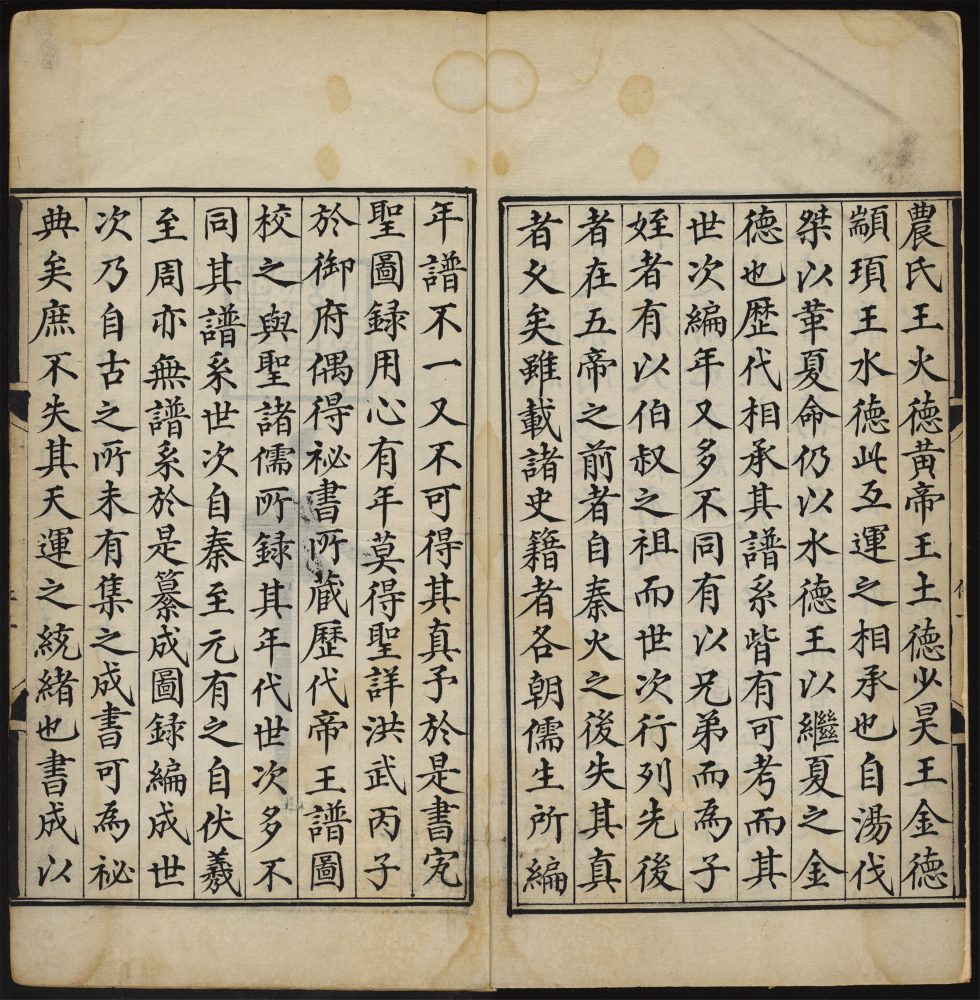 農氏王火德黃帝王土德少昊王金德
顓頊王水德此五運之相承也自湯伐
桀以革夏命仍以水德王以繼夏之金
德也歷代相承其譜系皆有可考而其
世次編年又多不同有以兄弟而為子
姪者有以伯叔之祖而世次行列先後
者在五帝之前者自秦火之後失其真
者久矣雖載諸史籍者各朝儒生所編
年譜不一又不可得其真予於是書究
聖圖録用心有年莫得聖詳洪武丙子
於御府偶得祕書所藏歷代帝王譜圖
校之與聖諸儒所録其年代世次多不
同其譜系世次自秦至元有之自伏羲
至周亦無譜系於是纂成圖録編成世
次乃自古之所未有集之成書可為祕
典矣庶不失其天運之統緒也書成以